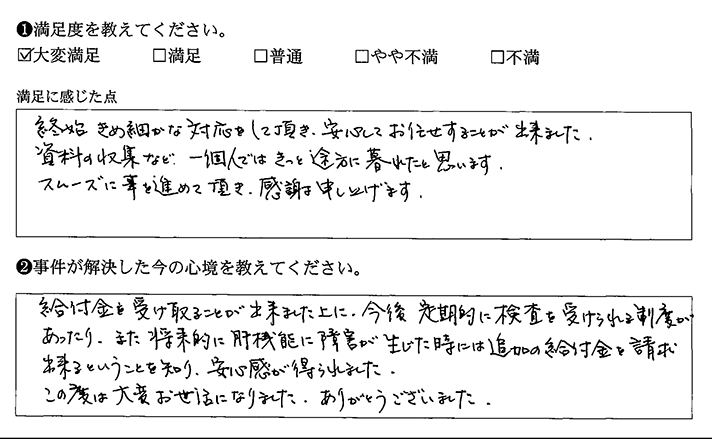 ❶満足度を教えてください。
☑大変満足 □満足 □普通 □やや不満 □不満
満足に感じた点
終始 きめ細かな対応をして頂き、安心してお任せすることが出来ました。
資料の収集など、一個人ではきっと途方に暮れたと思います。
スムーズに事を進めて頂き、感謝申し上げます。
❷事件が解決した今の心境を教えてください。
給付金を受け取ることが出来ました上に、今後 定期的に検査を受けられる制度が
あったり、また将来的に肝機能に障害が生じた時には追加の給付金を請求
出来るということを知り、安心感が得られました。
この度は大変お世話になりました。ありがとうございました。